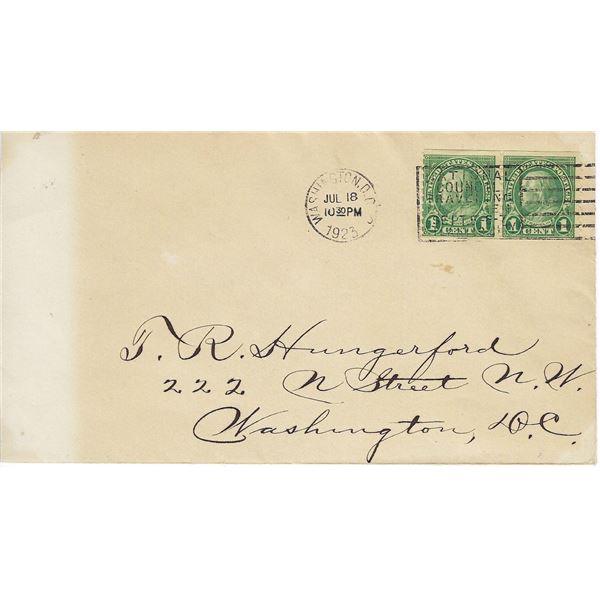 WASHINGTON, D.C.
JUL 18
10 30 PM
1923
UNITED STATES POSTAGE
1 CENT 1
UNITED STATES POSTAGE
1 CENT 1
T. R. Hungerford
222 N Street N. W.
Washington, D.C.